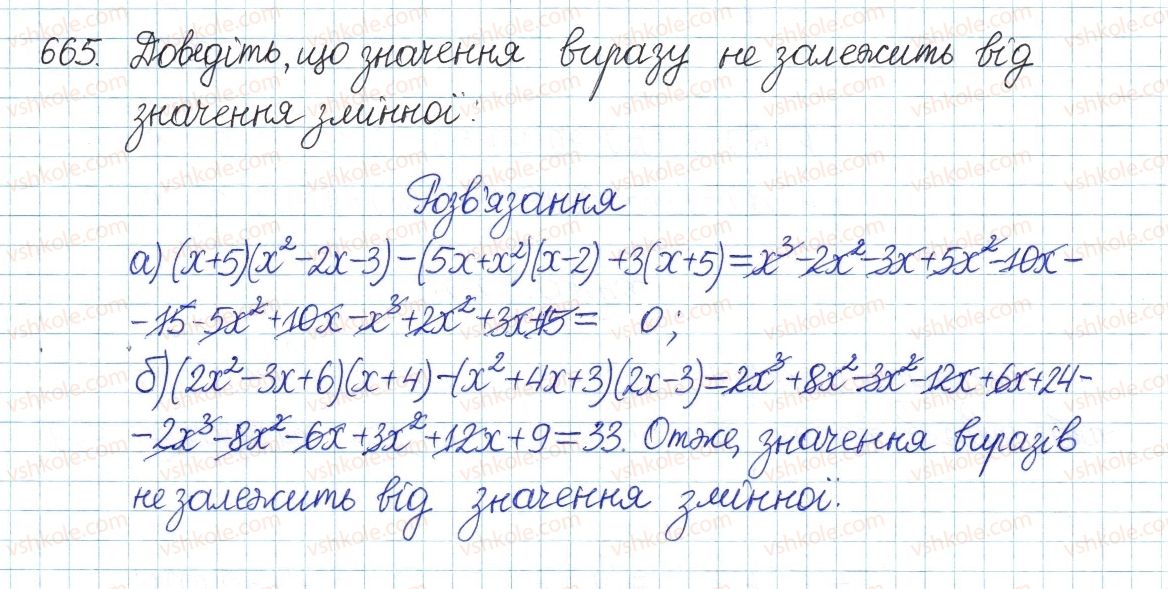 665. Доведіть, що значення виразу не залежить від
значення змінної:
Розв'язання
а) (x+5)(x²-2x-3)-(5x+x²)(x-2)+3(x+5)=x³-2x²-3x+5x²-10x-
-15-5x²+10x-x³+2x²+3x+15= 0;
б) (2x²-3x+6)(x+4)-(x²+4x+3)(2x-3)=2x³+8x²-3x²-12x+6x+24-
-2x³-8x²-6x+3x²+12x+9=33. Отже, значення виразів
не залежить від значення змінної.